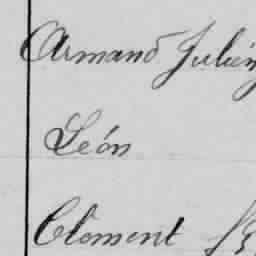 Armand Julien
León
Clement